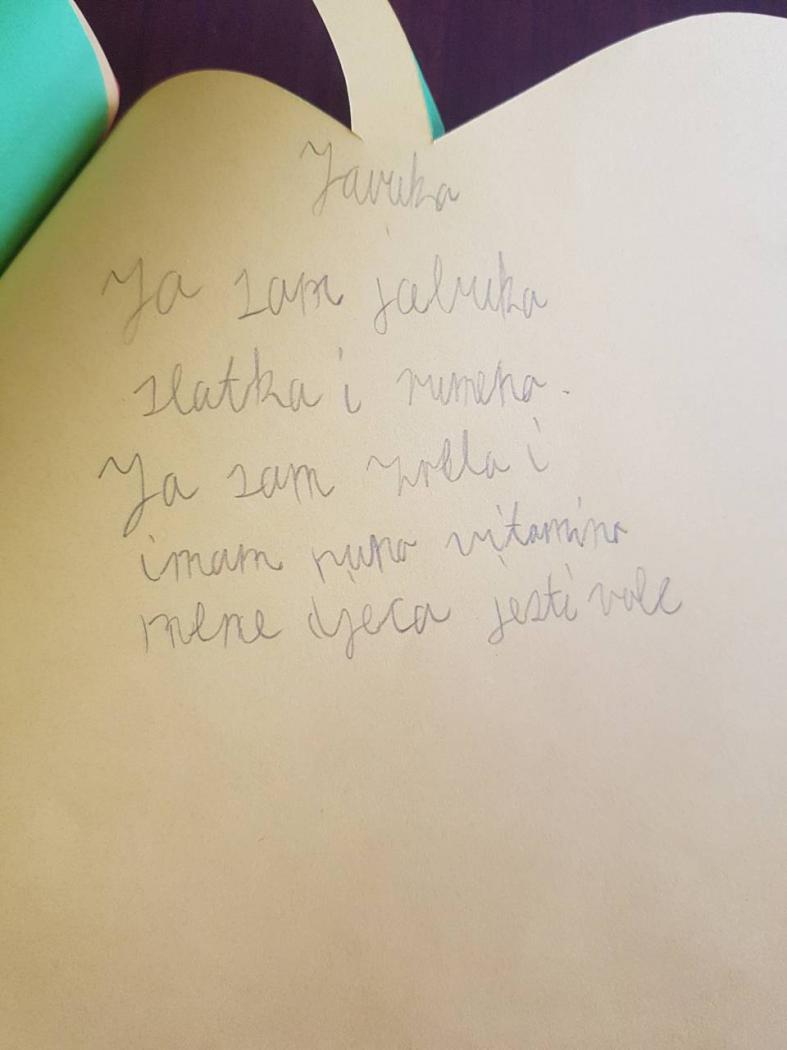 Javuka
Ja sam jabuka
slatka i rumena.
Ja sam zrela i
imam puno vitamina
mene djeca jesti vole